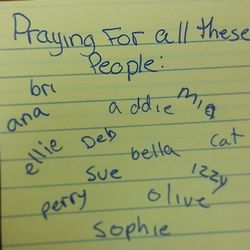 Praying For all these
People:
bri
ana addie mia
ellie Deb bella cat
Sue izzy
perry olive
Sophie